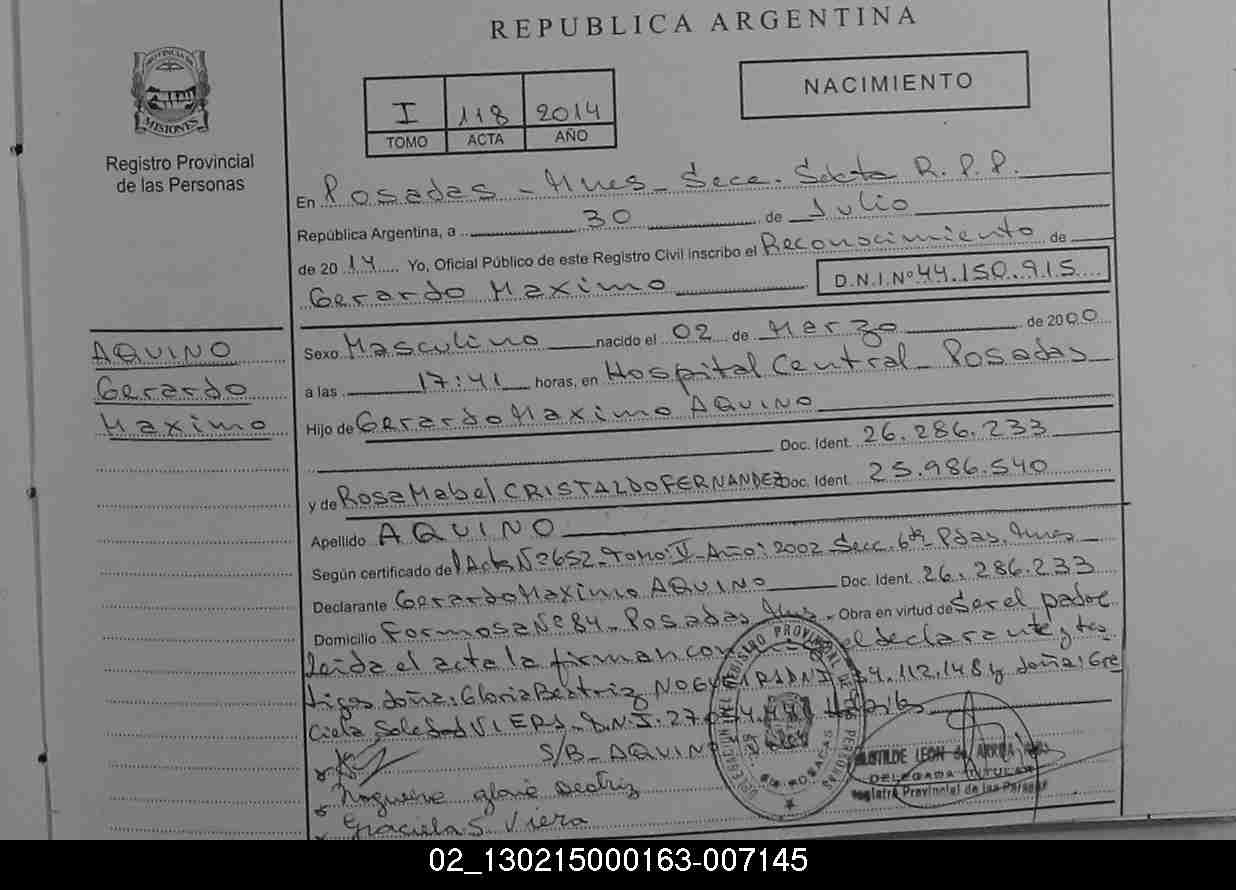 REPUBLICA ARGENTINA
PROVINCIA DE
MISIONES
Registro Provincial
de las Personas
I 118 2014
TOMO ACTA AÑO
NACIMIENTO
En Posadas - Mnes - Secc. Sexta R.P.P.
República Argentina, a 30 de Julio
de 2014 Yo, Oficial Público de este Registro Civil inscribo el Reconocimiento de
Gerardo Maximo D.N.I.Nº 44.150.915
AQUINO
Gerardo
Maximo
Sexo Masculino nacido el 02 de Marzo de 2000
a las 17:41 horas, en Hospital Central - Posadas
Hijo de Gerardo Maximo AQUINO
Doc. Ident. 26.286.233
y de Rosa Mabel CRISTALDO FERNANDEZ Doc. Ident. 25.986.540
Apellido AQUINO
Según certificado de Acta Nº 652 - Tomo: II - Año: 2002 Secc. 6ta Pdas. Mnes
Declarante Gerardo Maximo AQUINO Doc. Ident. 26.286.233
Domicilio Formosa Nº 84 - Posadas Mns - Obra en virtud de Ser el padre
leida el acta la firman con el declarante y tes
tigos doña: Gloria Beatriz NOGUEIRA DNI 112.148 y doña: Gre
Ciela Soledad VIERA D.N.I. 27. Hábiles
S/B - AQUINO - Vale
Nogueira Gloria Beatriz
Graciela S. Viera
DELEGACION DEL REGISTRO PROVINCIAL DE LAS PERSONAS
POSADAS
MATILDE LEON de ARRUA
DELEGADA TITULAR
Registro Provincial de las Personas
02_130215000163-007145